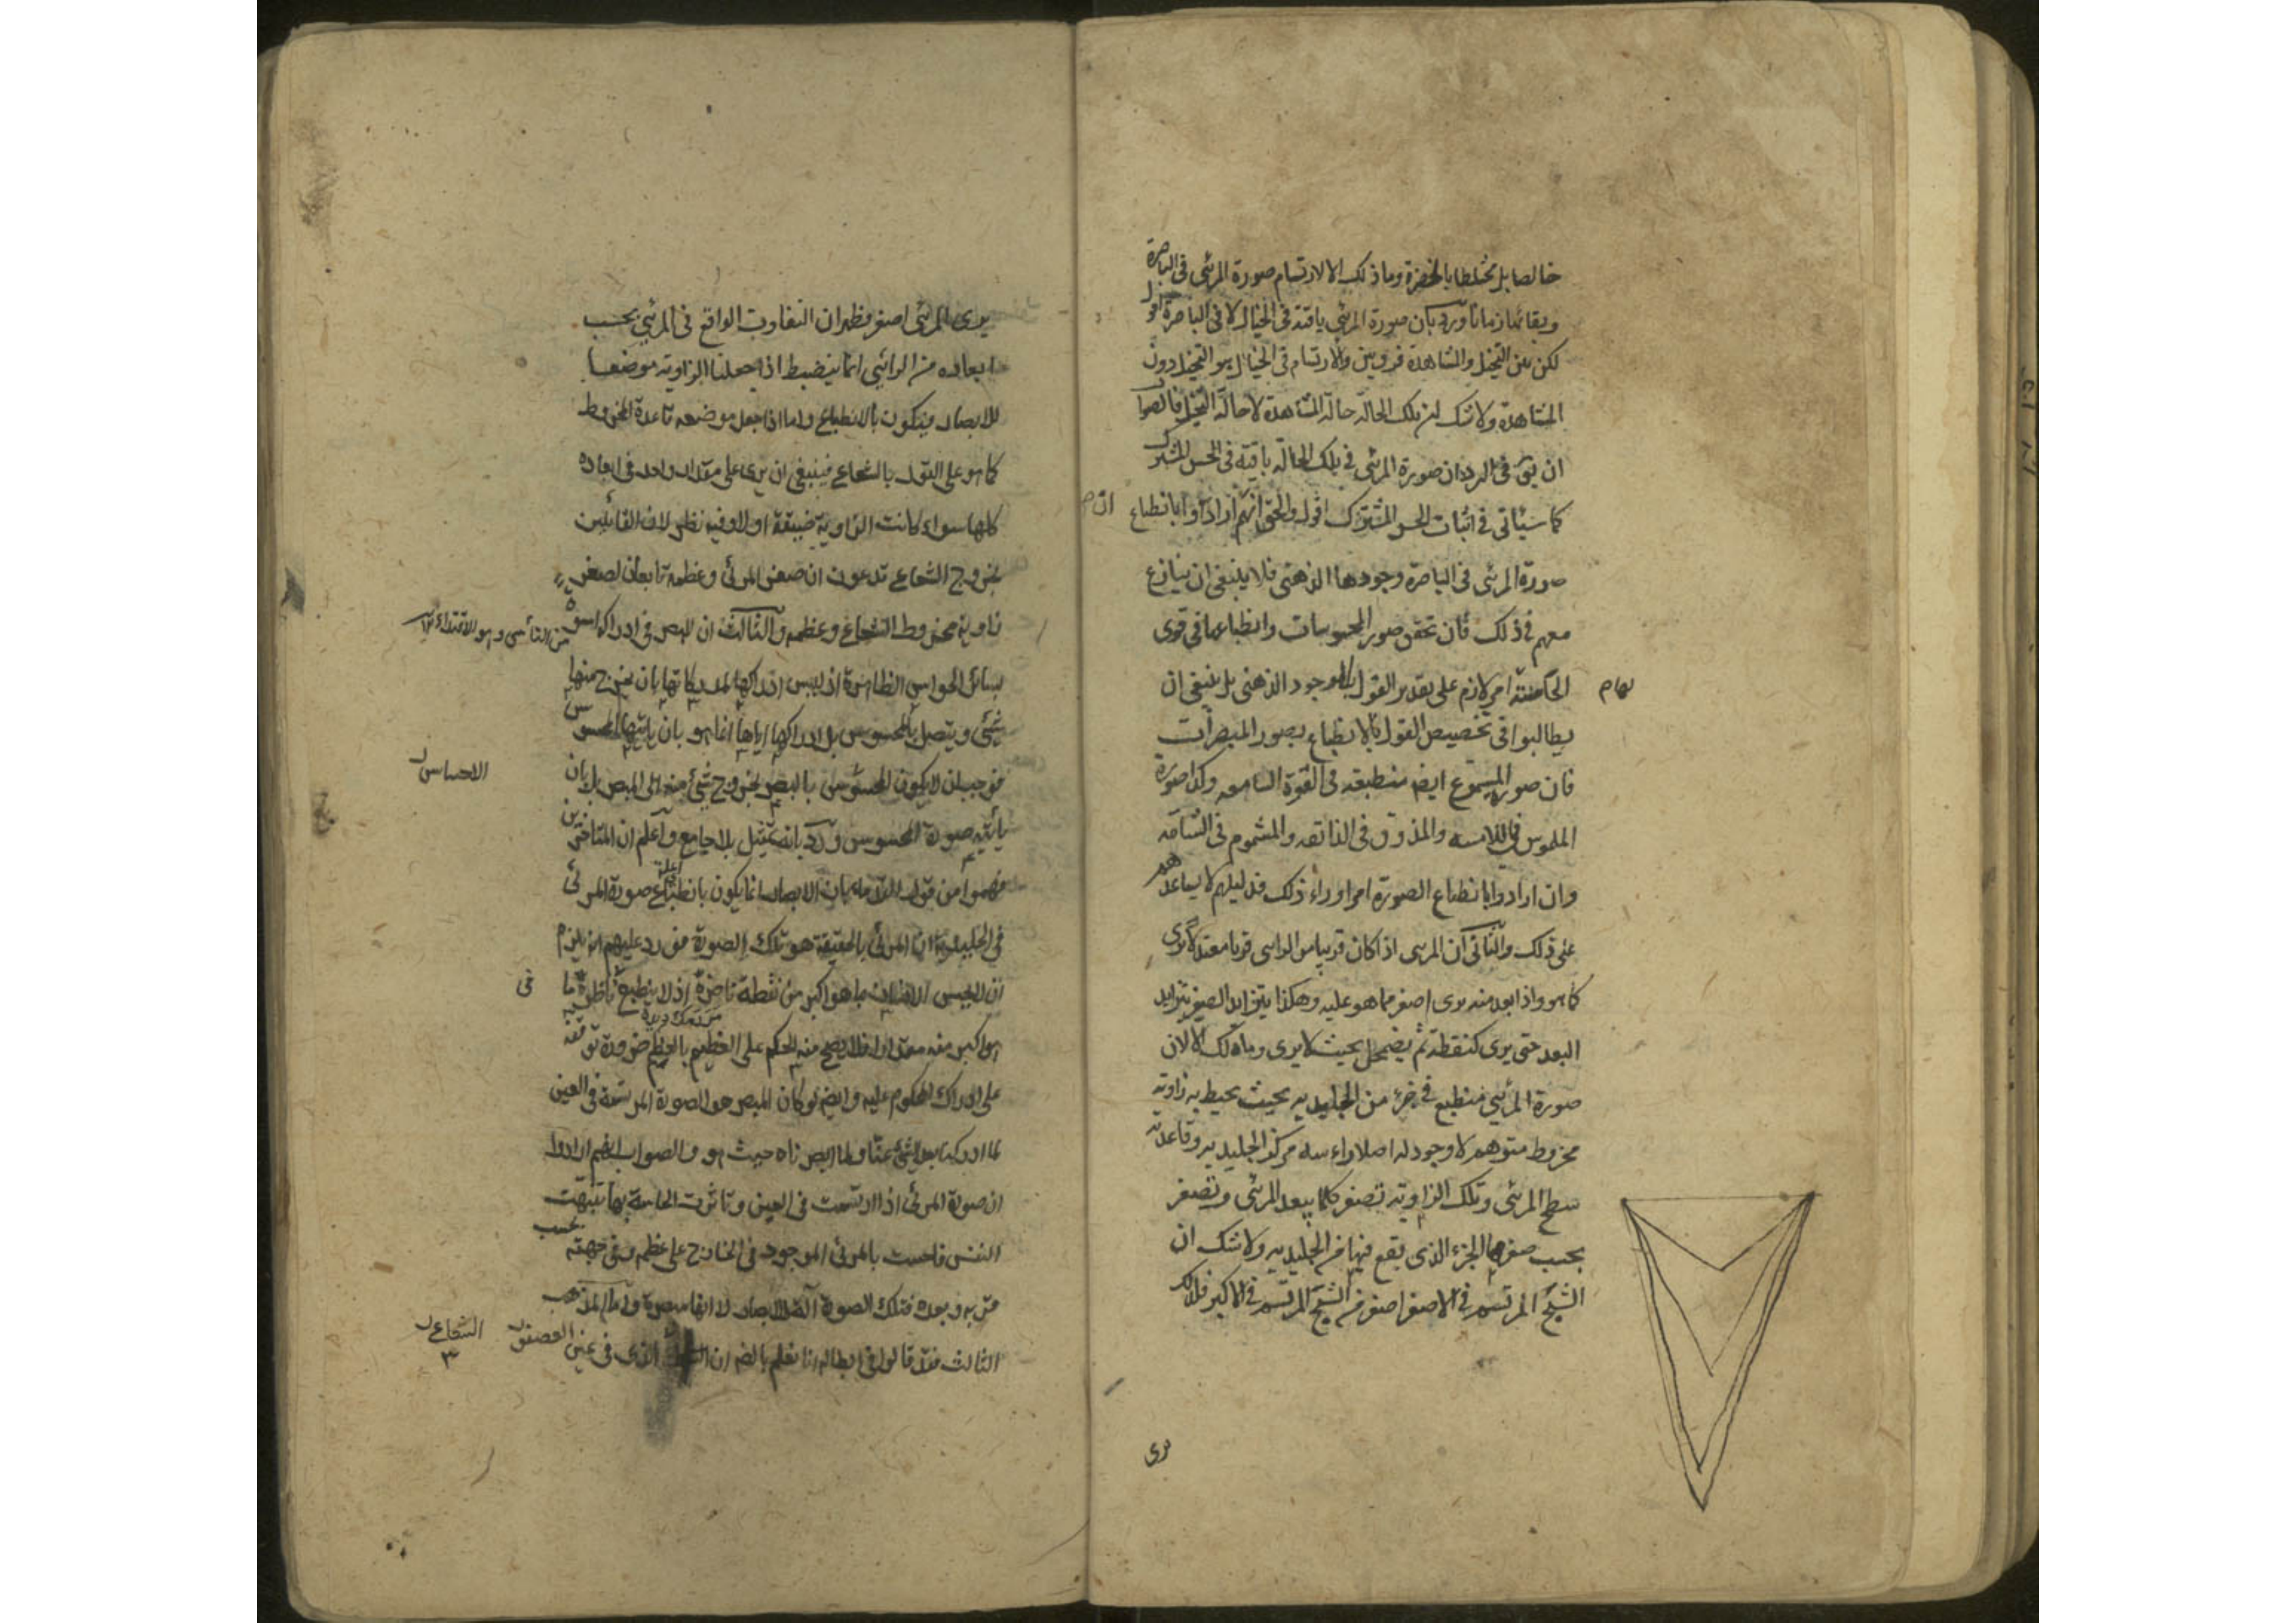 خالصا بل مختلطا بالخضرة وما ذلك الا لارتسام صورة المرئى فى الباصرة
وبقائها زمانا ورد بان صورة المرئى باقية فى الخيال لا فى الباصرة
لكن بين التخيل والمشاهدة فرق بين والارتسام فى الخيال هو التخيل دون
المشاهدة ولا شك ان تلك الحالة حالة المشاهدة لا حالة التخيل فالصواب
ان يق فى الرد ان صورة المرئى فى تلك الحالة باقية فى الحس المشترك
كما سيأتى فى اثبات الحس المشترك اقول والحق انهم ان ارادوا بانطباع
صورة المرئى فى الباصرة وجودها الذهنى فلا ينبغى ان ينازع
معهم فى ذلك فان تحقق صور المحسوسات وانطباعها فى قوى
الحاسة امر لازم على تقدير القول بالوجود الذهنى بل ينبغى ان
يطالبوا فى تخصيص القول بالانطباع بصور المبصرات
فان صورة المسموع ايضا منطبعة فى القوة السامعه وكذا صورة
الملموس فى اللامسه والمذوق فى الذائقه والمشموم فى الشامه
وان ارادوا بانطباع الصورة امرا وراء ذلك فدليلهم لا يساعدهم
على ذلك والثانى ان المرئى اذا كان قريبا من الرائى قربا معتدلا يرى
كما هو واذا بعد منه يرى اصغر مما هو عليه وهكذا يتزايد الصغر بتزايد
البعد حتى يرى كنقطة ثم يضمحل بحيث لا يرى وما ذلك الا لان
صورة المرئى منطبع فى جزء من الجليديه بحيث يحيط به زاويه
مخروط متوهم لا وجود له اصلا راسه مركز الجليديه وقاعدته
سطح المرئى وتلك الزاويه تصغر كلما يبعد المرئى وتصغر
بحسب صغرها الجزء الذى يقع فيها من الجليديه ولا شك ان
الشبح المرتسم فى الاصغر اصغر من الشبح المرتسم فى الاكبر فلذلك
يرى
يرى المرئى اصغر فظهر ان التفاوت الواقع فى المرئى بحسب
ابعاده من الرائى انما ينضبط اذا جعلنا الزاويه موضعا
للابصار فيكون بالانطباع واما اذا جعل موضعه قاعدة المخروط
كما هو على القول بالشعاع فينبغى ان يرى على مقدار واحد فى ابعاده
كلها سواء كانت الزاوية ضيقة اولا وفيه نظر لان القائلين
بخروج الشعاع يدعون ان صغر المرئى وعظمه تابعان لصغر
زاوية مخروط الشعاع وعظمه والثالث ان للبصر فى ادراكه اسوة
بسائر الحواس الظاهرة اذ ليس ادراكها لمدركاتها بان يخرج منها
شىء ويتصل بالمحسوس بل ادراكها اياها انما هو بان ياتيها المحسوس
فوجب ان لا يكون الاحساس بالبصر بخروج شىء منه الى المبصر بل بان
ياتيه صورة المحسوس ورد بانه تمثيل بلا جامع واعلم ان المتاخرين
فهموا من قول القدماء بان الابصار انما يكون بانطباع صورة المرئى
فى الجليدية ان المرئى بالحقيقة هو تلك الصورة فورد عليهم انه يلزم
هو اكبر منه مقدارا فلا يصح منه الحكم على العظيم بالعظم ضرورة توقفه
على ادراك المحكوم عليه وايضا لو كان المبصر هو الصورة المرتسمة فى العين
لما ادركنا بعد الشىء عنا ولما ابصرناه حيث هو والصواب انهم ارادوا
ان صورة المرئى اذا ارتسمت فى العين وتاثرت الحاسة بها تنبهت
النفس فاحست بالمرئى الموجود فى الخارج على عظمه وفى جهته بحسب
قربه وبعده فتلك الصورة آلة للابصار لا انها مبصرة واما المذهب
الثالث فقد قالوا فى ابطاله انا نعلم بالضرورة ان الشعاع الذى فى عين العصفور
الاحساس
فى
الشعاع